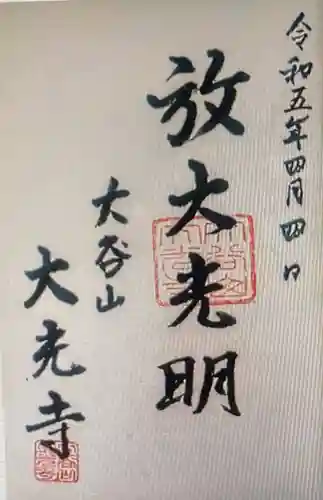 令和五年四月四日
放大光明
大谷山
大光寺